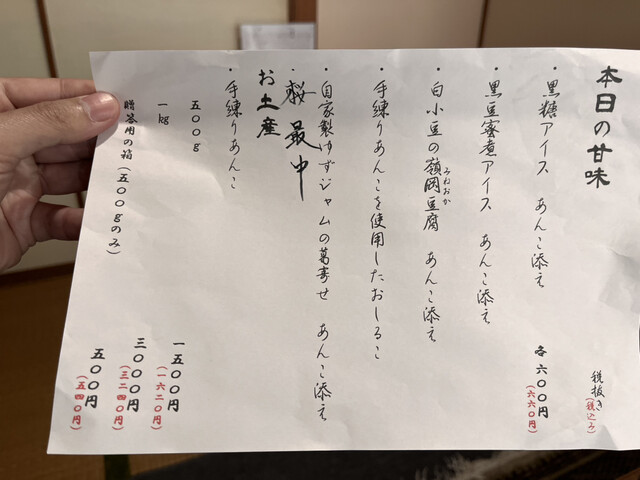 本日の甘味
税抜き(税込み)
・黒糖アイス あんこ添え
各六〇〇円
(六六〇円)
・黒豆蜜煮アイス あんこ添え
・白小豆の嶺岡豆腐 あんこ添え
みねおか
・手練りあんこを使用したおしるこ
・自家製ゆずジャムの葛寄せ あんこ添え
・桜最中
お土産
・手練りあんこ
五〇〇g 一五〇〇円
(一六二〇円)
一kg 三〇〇〇円
(三二四〇円)
贈答用の箱(五〇〇gのみ) 五〇〇円
(五四〇円)